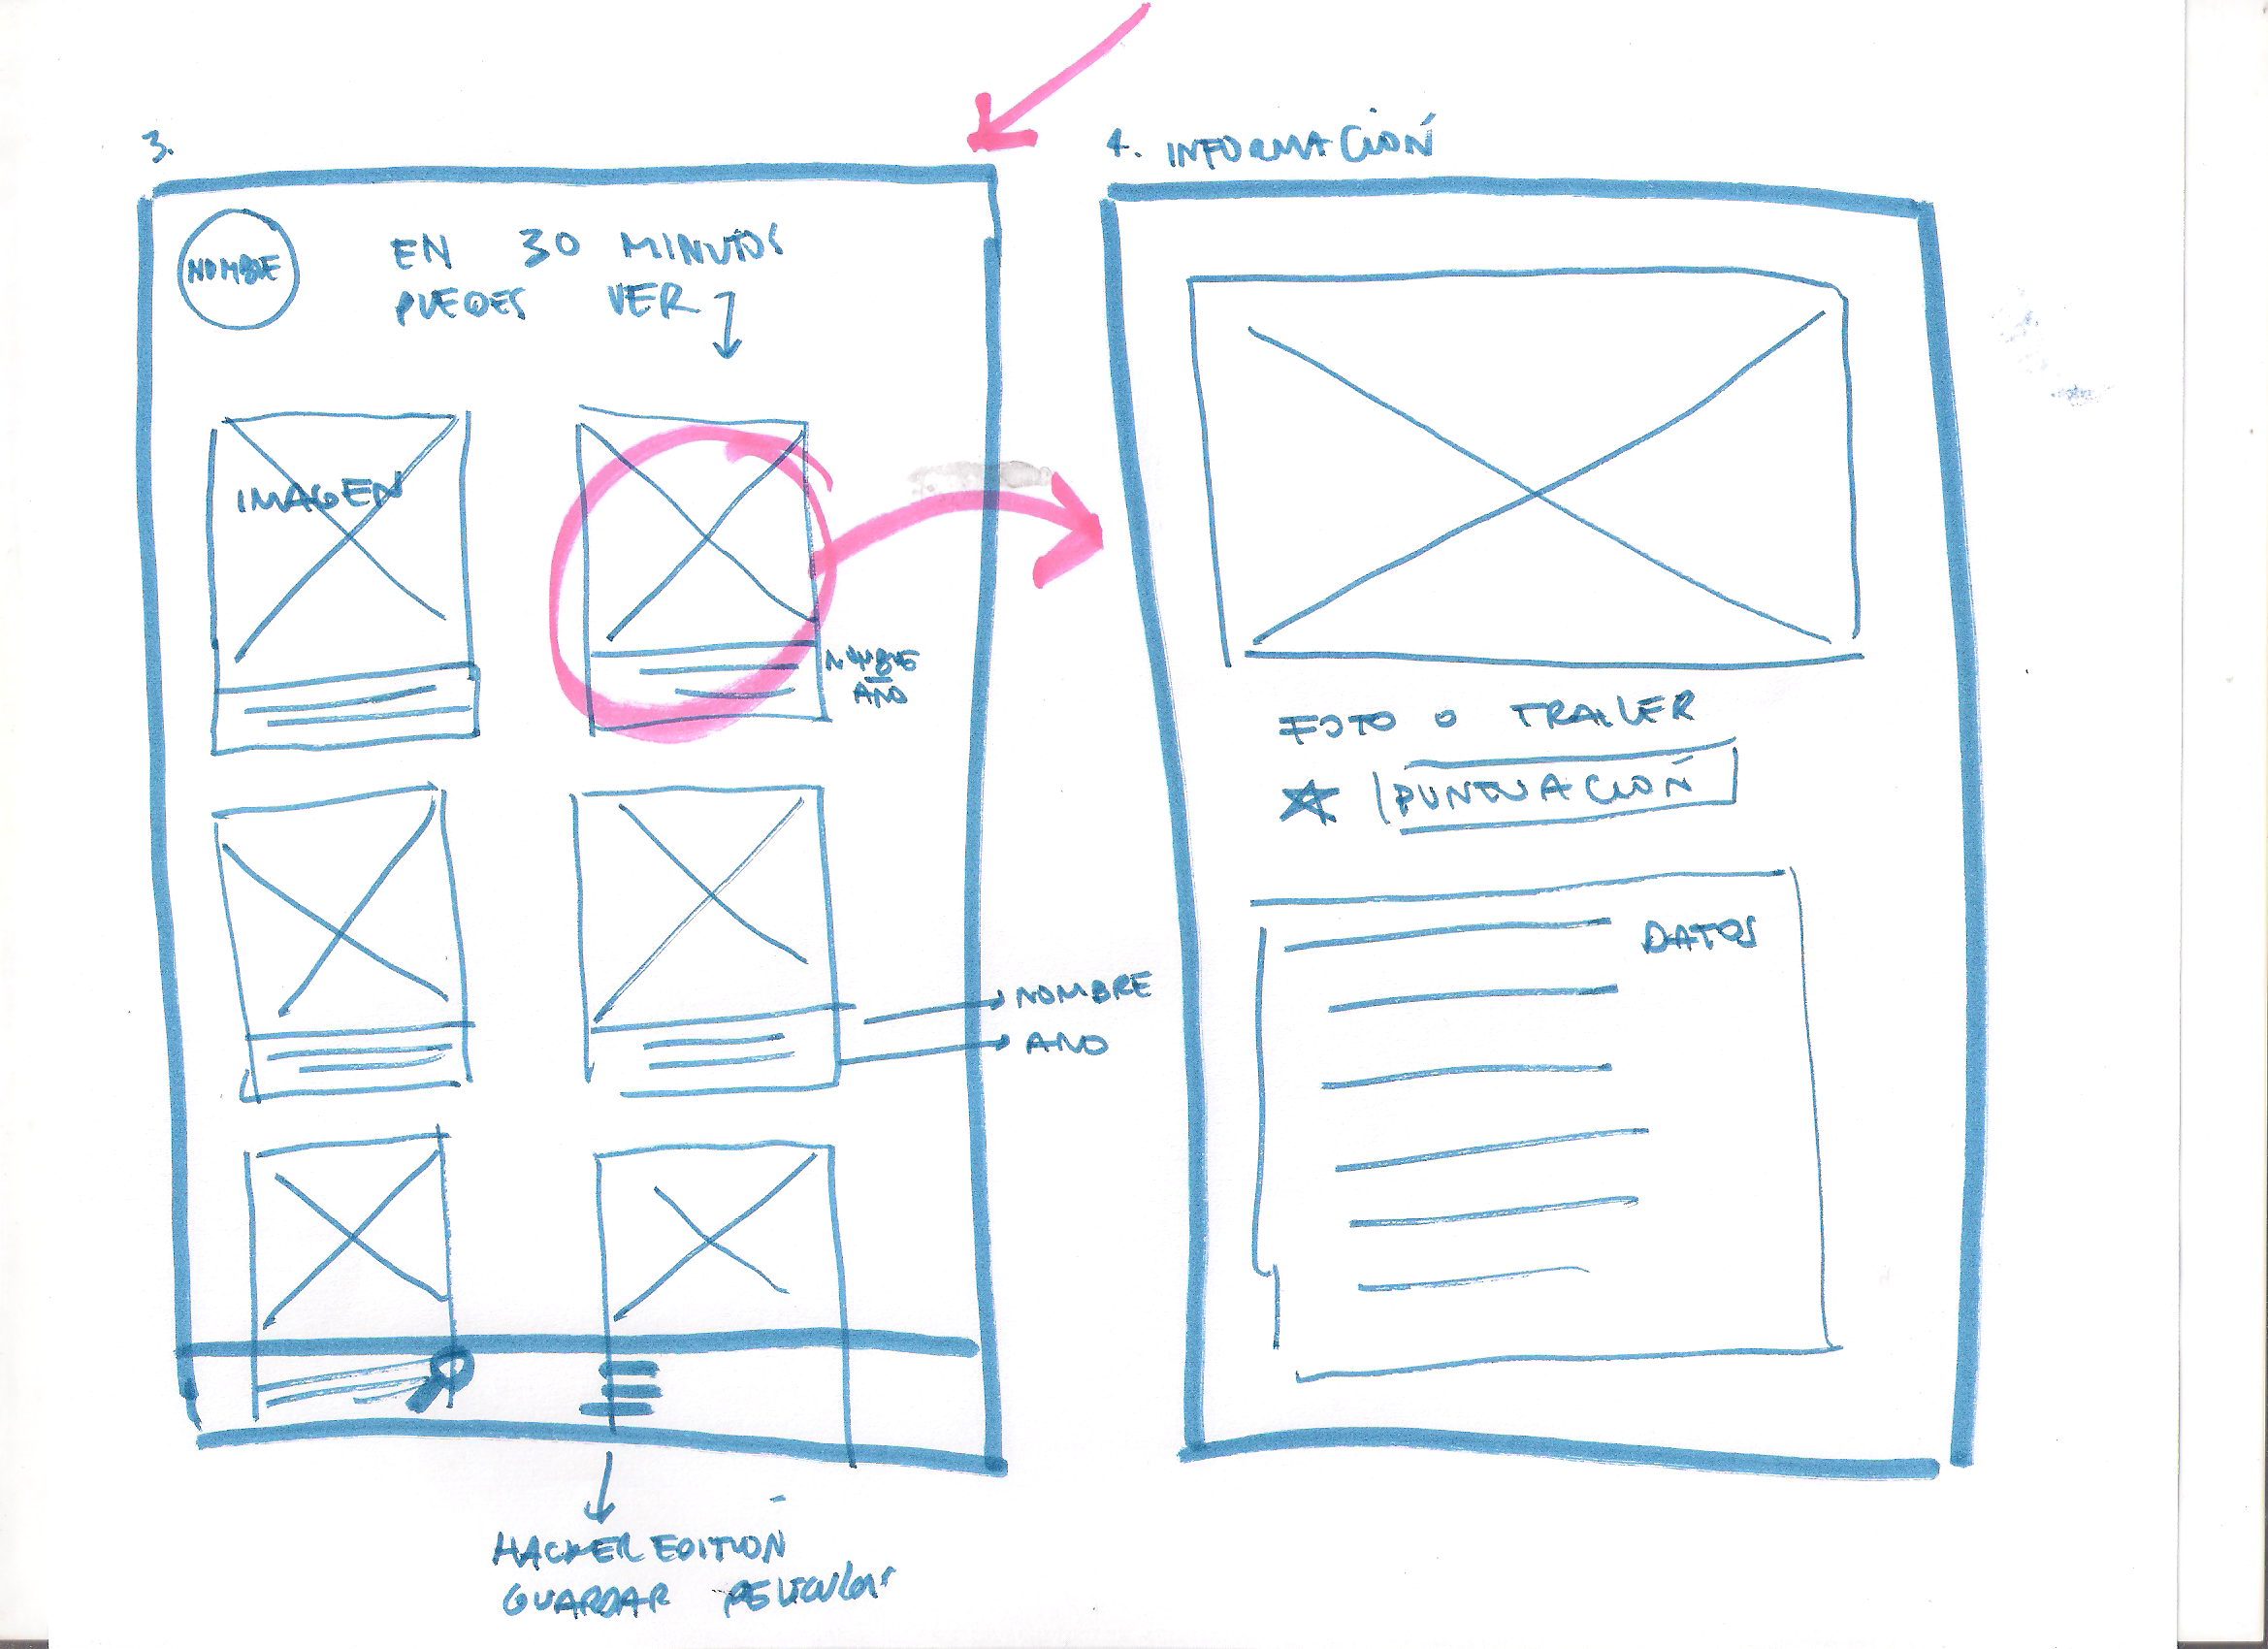 3.
NOMBRE
EN 30 MINUTOS
PUEDES VER
IMAGEN
NOMBRE
AÑO
NOMBRE
AÑO
HACKER EDITIÓN
GUARDAR PELICULAS
4. INFORMACIÓN
FOTO O TRAILER
PUNTUACIÓN
DATOS